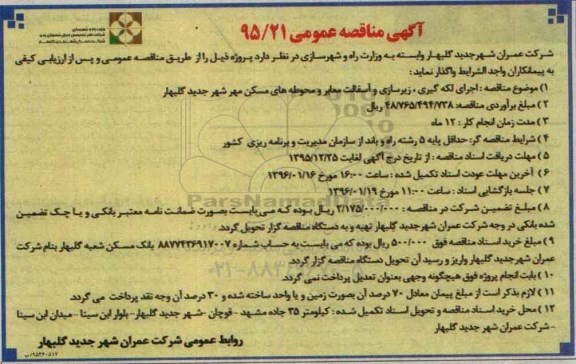 آگهی مناقصه عمومی ۹۵/۲۱
شرکت عمران شهر جدید گلبهار وابسته به وزارت راه و شهرسازی در نظر دارد پروژه ذیل را از طریق مناقصه عمومی و پس از ارزیابی کیفی
به پیمانکاران واجد الشرایط واگذار نماید:
۱) موضوع مناقصه : اجرای لکه گیری ، زیرسازی و آسفالت معابر و محوطه های مسکن مهر شهر جدید گلبهار
۲) مبلغ برآوردی مناقصه: ۴۸/۷۶۵/۴۹۴/۷۳۸ ریال
۳) مدت زمان انجام کار : ۱۲ ماه
۴) شرایط مناقصه گر: حداقل پایه ۵ رشته راه و باند از سازمان مدیریت و برنامه ریزی کشور
۵) مهلت دریافت اسناد مناقصه : از تاریخ درج آگهی لغایت ۱۳۹۵/۱۲/۲۵
۶ ) آخرین مهلت عودت اسناد تکمیل شده : ساعت ۱۶:۰۰ مورخ ۱۳۹۶/۰۱/۱۶
۷) جلسه بازگشایی اسناد : ساعت ۱۱:۰۰ مورخ ۱۳۹۶/۰۱/۱۹
۸ ) مبلغ تضمین شرکت در مناقصه : ۲/۱۷۵/۰۰۰/۰۰۰ ریال بوده که می بایست بصورت ضمانت نامه معتبر بانکی و یا چک تضمین
شده بانکی در وجه شرکت عمران شهر جدید گلبهار تهیه و به دستگاه مناقصه گزار تحویل گردد.
۹ ) مبلغ خرید اسناد مناقصه فوق ۵۰۰/۰۰۰ ریال بوده که می بایست به حساب شماره ۸۸۷۷۴۳۶۹۱۷۰۰۷ بانک مسکن شعبه گلبهار بنام شرکت
عمران شهر جدید گلبهار واریز و رسید آن تحویل دستگاه مناقصه گزار گردد.
۱۰ ) بابت انجام پروژه فوق هیچگونه وجهی بعنوان تعدیل پرداخت نمی گردد.
۱۱ ) لازم بذکر است از مبلغ پیمان معادل ۷۰ درصد آن بصورت زمین و یا واحد ساخته شده و ۳۰ درصد آن وجه نقد پرداخت می گردد.
۱۲ ) محل خرید اسناد مناقصه و تحویل اسناد تکمیل شده : کیلومتر ۳۵ جاده مشهد - قوچان - شهر جدید گلبهار- بلوار ابن سینا - میدان ابن سینا
- شرکت عمران شهر جدید گلبهار
روابط عمومی شرکت عمران شهر جدید گلبهار
ParsNamadData